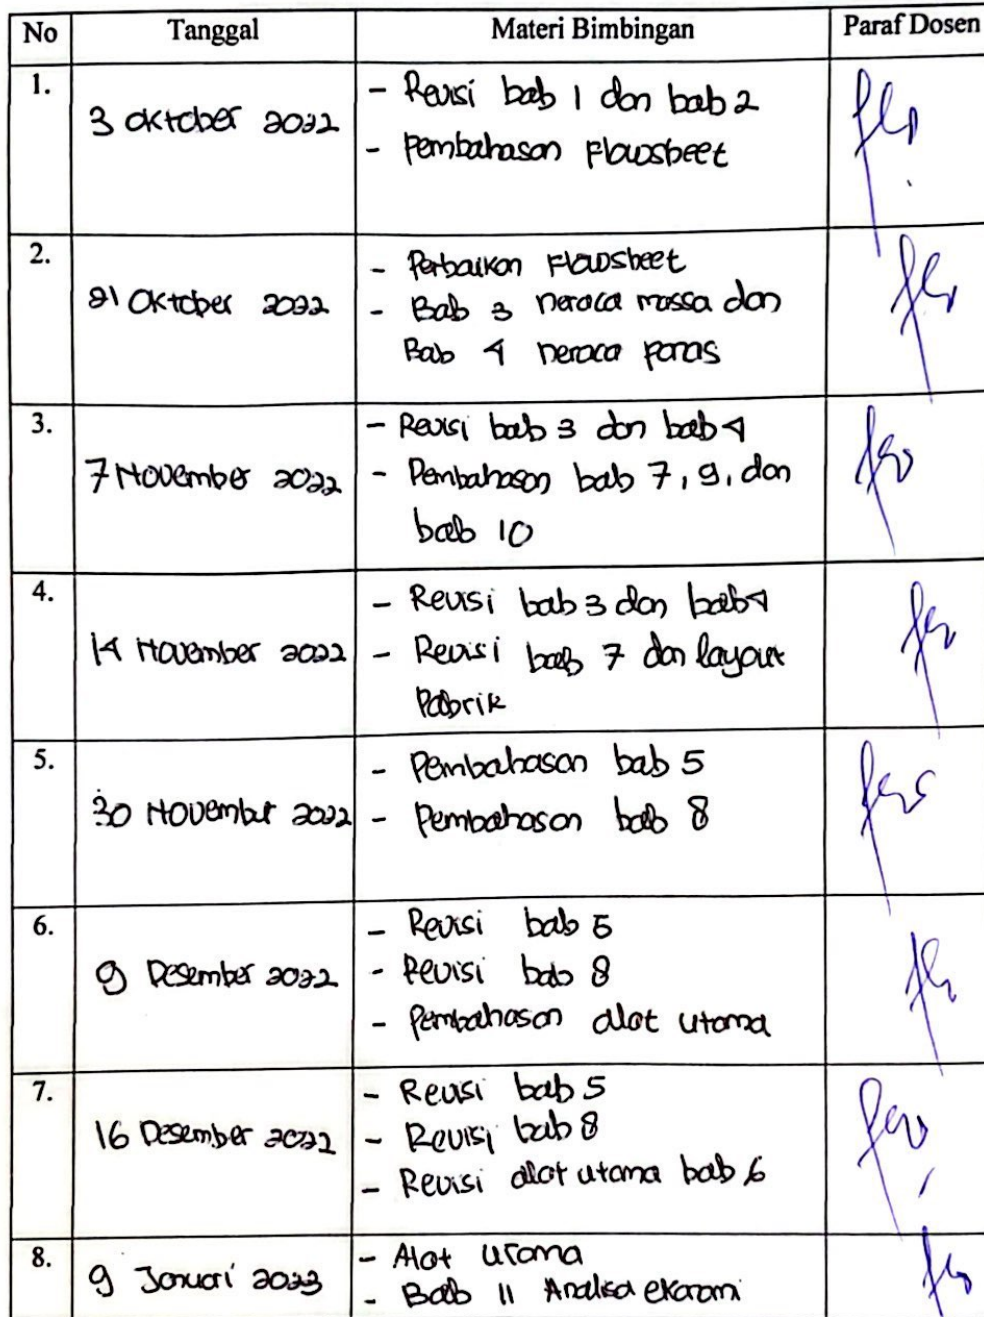 No Tanggal Materi Bimbingan Paraf Dosen
1.
3 Oktober 2022
- Revisi bab 1 dan bab 2
- Pembahasan Flowsheet
2.
21 Oktober 2022
- Perbaikan Flowsheet
- Bab 3 neraca massa dan
Bab 4 neraca panas
3.
7 November 2022
- Revisi bab 3 dan bab 4
- Pembahasan bab 7, 9, dan
bab 10
4.
14 November 2022
- Revisi bab 3 dan bab 4
- Revisi bab 7 dan layout
Pabrik
5.
30 November 2022
- Pembahasan bab 5
- Pembahasan bab 8
6.
9 Desember 2022
- Revisi bab 5
- Revisi bab 8
- Pembahasan alat utama
7.
16 Desember 2022
- Revisi bab 5
- Revisi bab 8
- Revisi alat utama bab 6
8.
9 Januari 2023
- Alat utama
- Bab 11 Analisa ekonomi